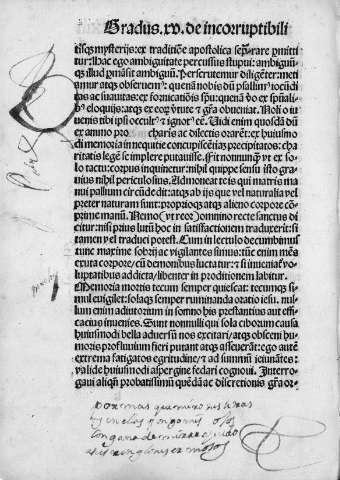 Gradus .xv. de incorruptibili
tisq̃ mysterijs: ex traditiõe apostolica sep̃rare pmitti
tur: Hac ego ambiguitate percussus stupui: ambiguũ
q̃ illud pmãsit ambiguũ. Perscrutemur diligẽter: meti
amur atq̃ obseruem⁹: quenã nobis dũ psallim⁹ iocũdi
tas ac suauitas: ex fornicatiõis spũ: quenã ꝟo ex spũali
bus eloquijs: atq̃ ex eoꝝ ꝟtute & grã obueniat. Noli o iu
uenis tibi ipsi occult⁹ & ignot⁹ eẽ. Uidi enim quosdã dũ
ex animo pro charis ac dilectis orarẽt: ex huiusmo
di memoria in nequitie concupiscẽtias precipitatos: cha
ritatis legẽ se implere putauisse. Fit nonnunq̃ vt ex so
lo tactu: corpus inquinetur: nihil quippe sensu isto gra
uius nihil periculosius. Admonear te is qui matris ma
nui pallium circũdedit: atq̃ ab ijs que vel naturalia vel
preter naturam sunt: proprioq̃ atq̃ alieno corpore cõ
prime manũ. Nemo (vt reor) omnino recte sanctus di
citur: nisi prius lutũ hoc in satisfactionem traduxerit: si
tamen vel traduci potest. Cum in lectulo decumbimus
tunc maxime sobrij ac vigilantes simus: tũc enim mẽs
exuta corpore/ cũ demonibus luctatur: & si inueniat̃ vo
luptatibus addicta/ libenter in proditionem labitur.
Memoria mortis tecum semper quiescat: tecumq̃ si
mul euigilet: solaq̃ semper ruminanda oratio iesu. nul
lum enim adiutorium in somno his prestantius aut effi
cacius inuenies. Sunt nonnulli qui sola ciborum causa
huiusmodi bella aduersũ nos excitari/ atq̃ obscenũ hu
moris profluuium fieri putant atq̃ asseuerãt: ego autẽ
extrema fatigatos egritudine/ & ad summũ ieiunãtes:
valide huiusmodi aspergine fedari cognoui. Interro
gaui aliqñ probatissimũ quẽdã ac discretionis grã or